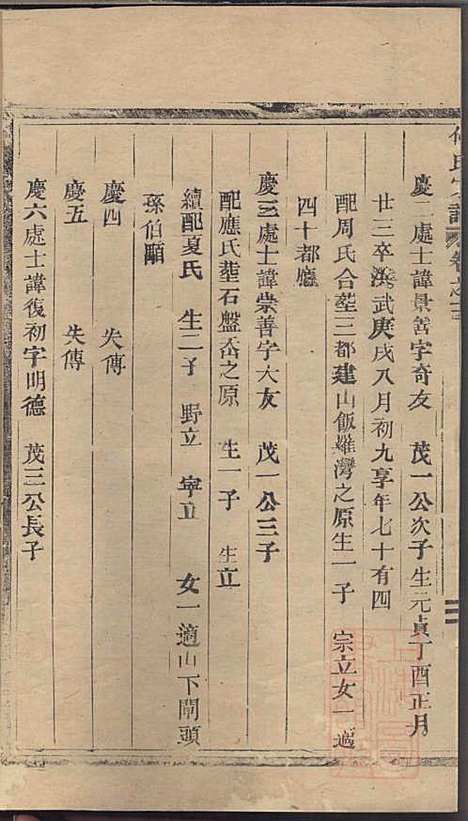 氏宗譜 卷之三
慶二處士諱景善字奇友 茂一公次子生元貞丁酉正月
廿三卒洪武庚戌八月初九享年七十有四
配周氏合塟三都建山飯羅灣之原生一子 宗立女一適
四十都廳
慶三處士諱崇善字大友 茂一公三子
配應氏塟石盤嵞之原 生一子 生立
續配夏氏 生二子 野立 寧立 女一適山下閘頭
孫伯顒
慶四 失傳
慶五 失傳
慶六處士諱復初字明德 茂三公長子